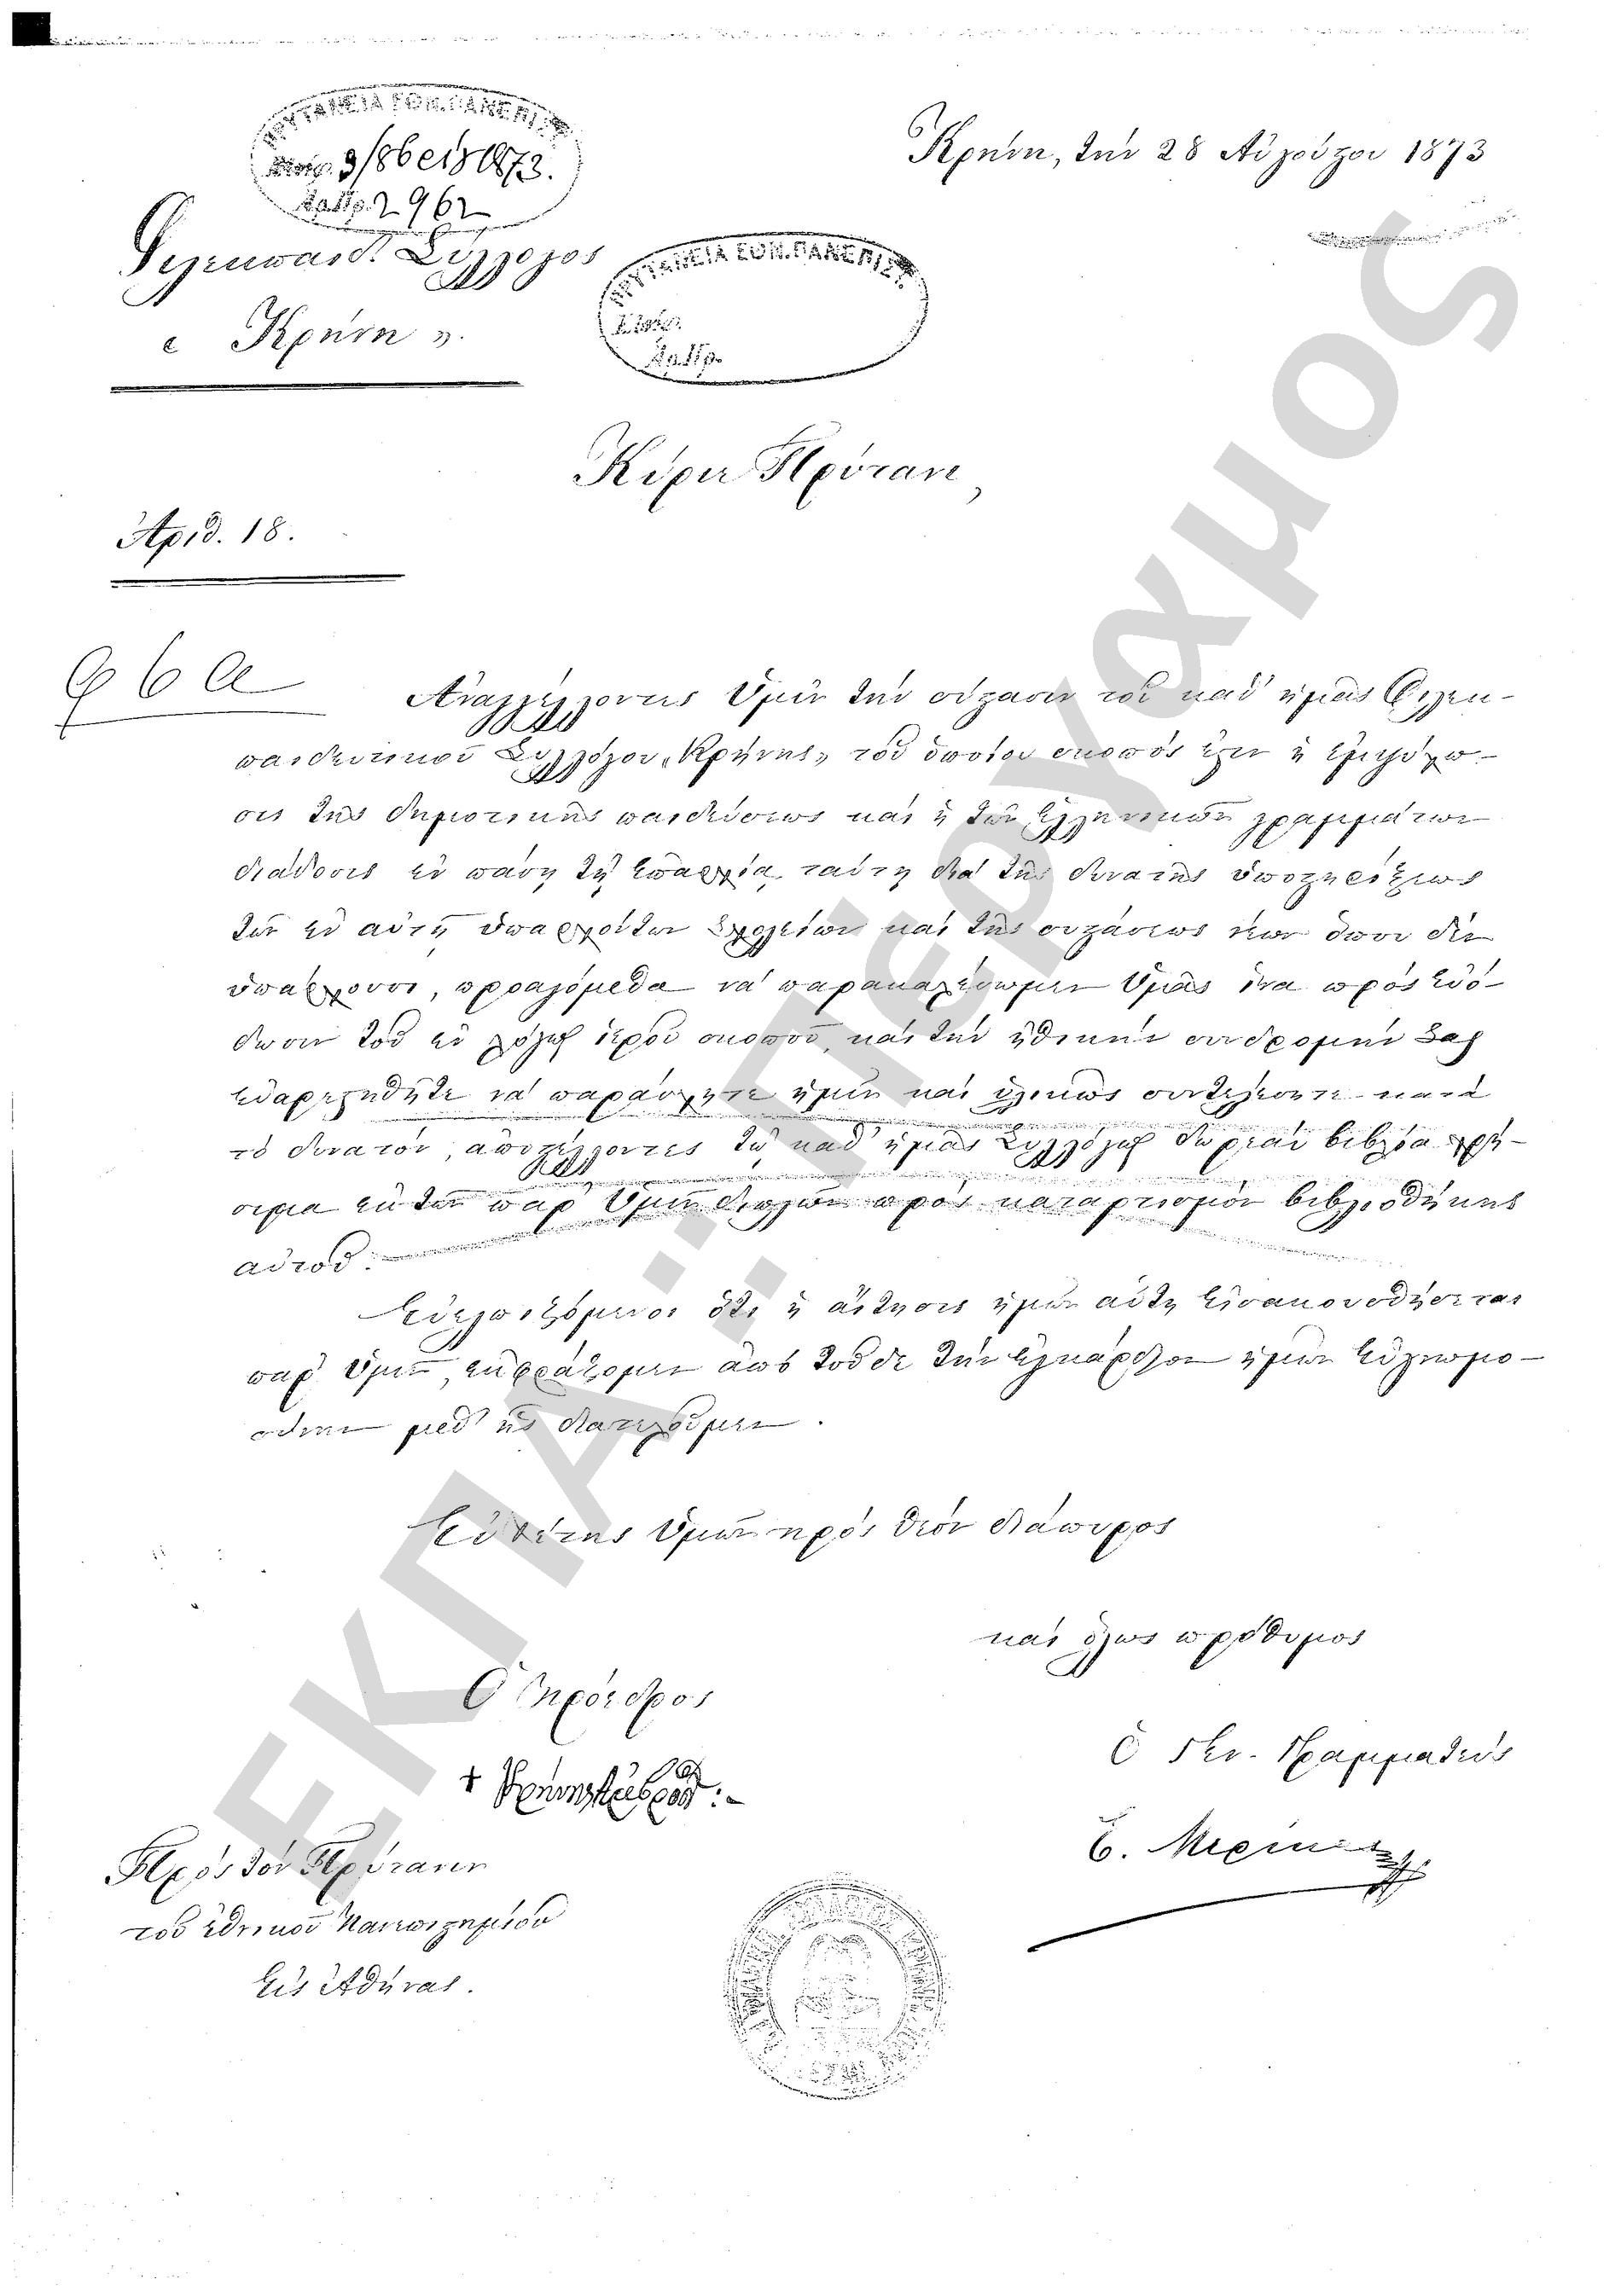 Κρήνη, τὴν 28 Αὐγούστου 1873
9/8βρ 1873.
2962
Φιλεκπαιδ. Σύλλογος
« Κρήνη ».
Κύριε Πρύτανι,
Ἀριθ. 18.
Ἀναγγέλλοντες Ὑμῖν τὴν σύστασιν τοῦ καθ' ἡμᾶς Φιλεκ-
παιδευτικοῦ Συλλόγου „Κρήνης„ τοῦ ὁποίου σκοπὸς ἔχει ἡ ἐμψύχω-
σις τῆς δημοτικῆς παιδεύσεως καὶ ἡ τῶν Ἑλληνικῶν γραμμάτων
διάδοσις ἐν πάσῃ τῇ ἐπαρχίᾳ ταύτῃ διὰ τῆς δυνατῆς ὑποστηρίξεως
τῶν ἐν αὐτῇ ὑπαρχόντων Σχολείων καὶ τῆς συστάσεως νέων ὅπου δὲν
ὑπάρχουσι, προαγόμεθα νὰ παρακαλέσωμεν Ὑμᾶς ἵνα πρὸς εὐό-
δωσιν τοῦ ἐν λόγῳ ἱεροῦ σκοποῦ, καὶ τὴν ἠθικὴν συνδρομήν Σας
εὐαρεστηθῆτε νὰ παράσχητε ἡμῖν καὶ ὑλικῶς συντελέσητε κατὰ
τὸ δυνατὸν, ἀποστέλλοντες τῷ καθ' ἡμᾶς Συλλόγῳ δωρεὰν βιβλία χρή-
σιμα ἐκ τῶν παρ' Ὑμῖν διπλῶν πρὸς καταρτισμὸν βιβλιοθήκης
αὐτοῦ.
Εὐελπιζόμενοι ὅτι ἡ αἴτησις ἡμῶν αὕτη εἰσακουσθήσεται
παρ' Ὑμῖν, ἐκφράζομεν ἀπὸ τοῦδε τὴν ἐγκάρδιον ἡμῶν εὐγνωμο-
σύνην μεθ' ἧς διατελοῦμεν.
Εὐχέτης Ὑμῶν πρὸς Θεὸν διάπυρος
καὶ ὅλως πρόθυμος
Ὁ Πρόεδρος
Ὁ Γεν. Γραμματεὺς
Πρὸς τὸν Πρύτανιν
τοῦ ἐθνικοῦ Πανεπιστημίου
Εἰς Ἀθήνας.
ΕΚΠΑ:Πέργαμος